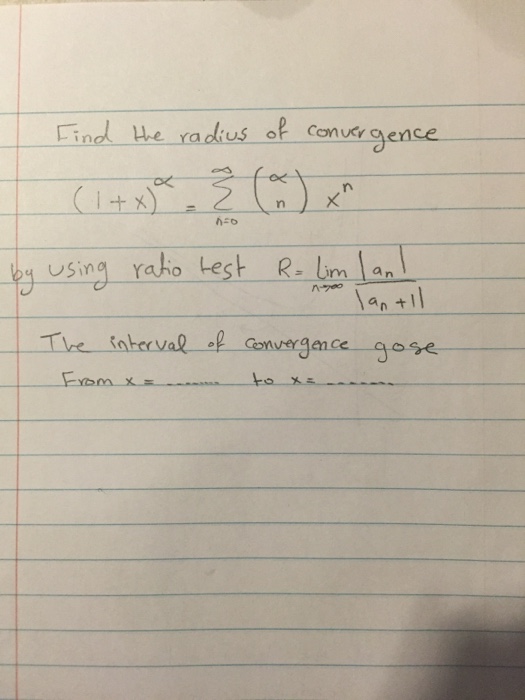 Find the radius of convergence
(1+x)^α = ∑_{n=0}^{∞} (α n) x^n
by using ratio test R= lim_{n→∞} |an| / |an +1|
The interval of convergence gose
From x = ........ to x= ........